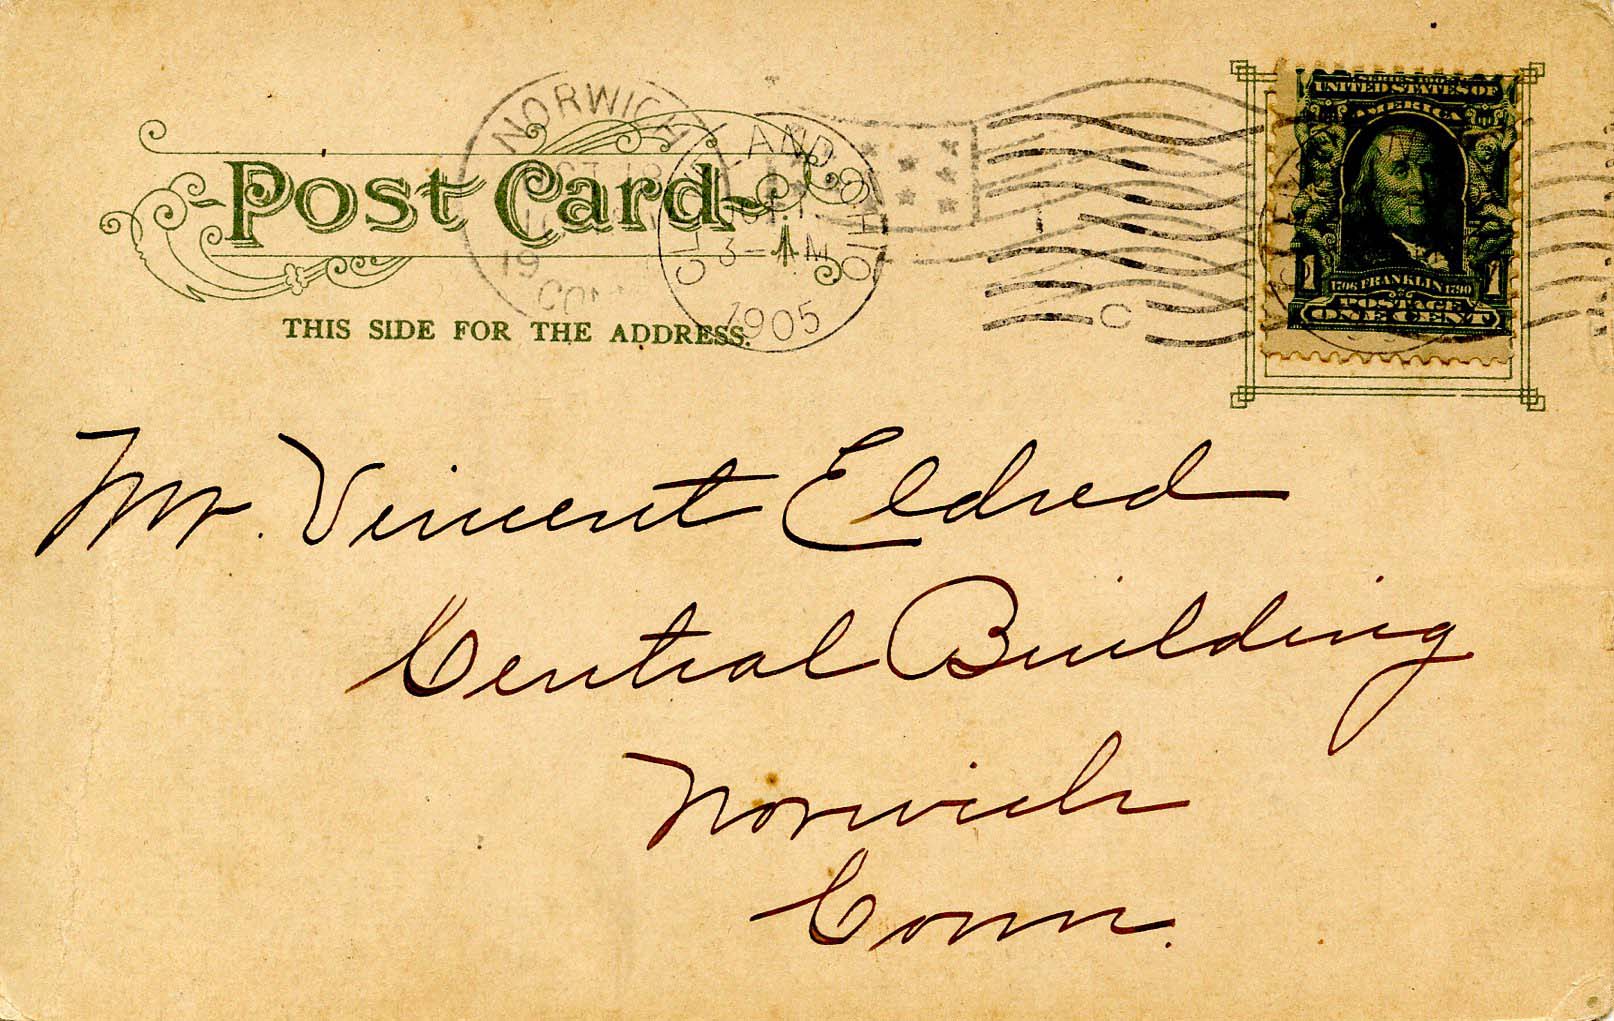 NORWICH
OCT 18
19
CONN
CLEVELAND OHIO
OCT 1
3-AM
1905
C
UNITED STATES OF
AMERICA
1706 FRANKLIN 1790
POSTAGE
1 1
ONE CENT
Post Card
THIS SIDE FOR THE ADDRESS.
Mr. Vincent Eldred
Central Building
Norwich
Conn.